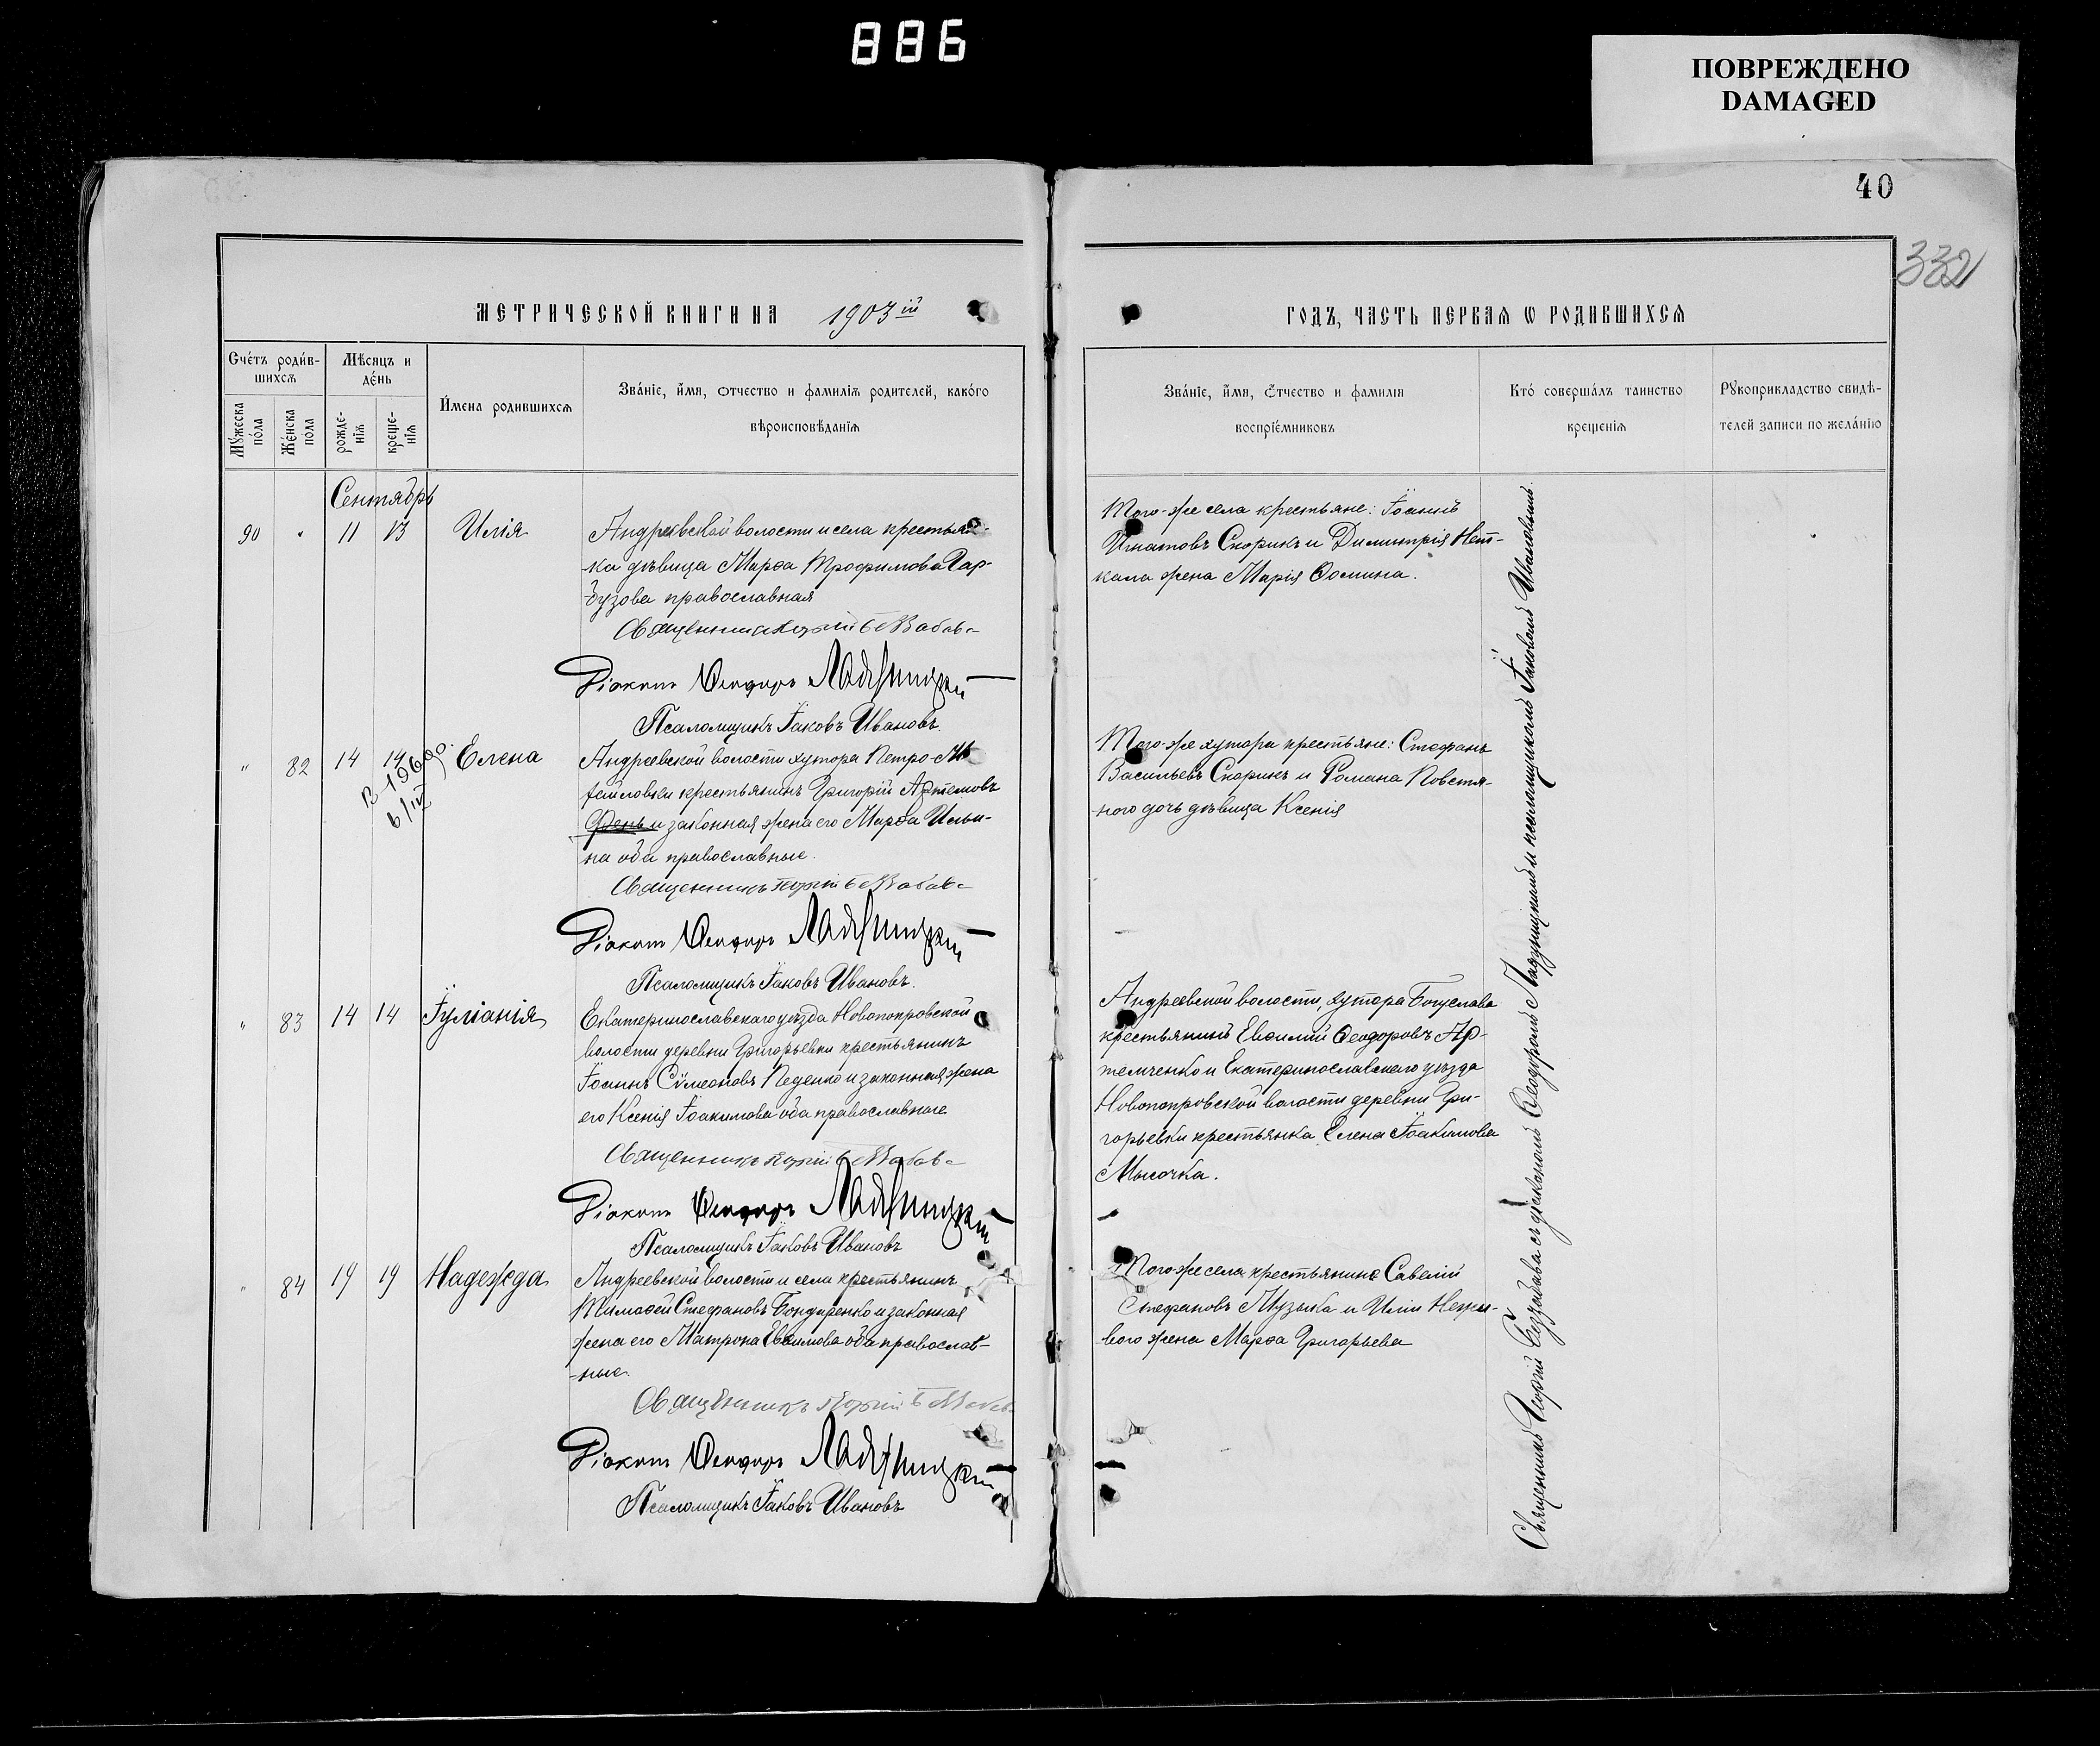 886
ПОВРЕЖДЕНО
DAMAGED
40
332
МЕТРИЧЕСКОЙ КНИГИ НА 1903 ій
ГОДЪ, ЧАСТЬ ПЕРВАЯ Ѡ РОДИВШИХСЯ
Счетъ родив-
шихся
Мѣсяцъ и
день
Имена родившихся
Званіе, имя, отчество и фамилія родителей, какого
вѣроисповѣданія
Мужеска
пола
Женска
пола
рожде-
нія
креще-
нія
Званіе, имя, отчество и фамилія
воспріемниковъ
Кто совершалъ таинство
крещенія
Рукоприкладство свидѣ-
телей записи по желанію
Сентябрь
90 " 11 13 Илія
Андреевской волости и села крестьян-
ка дѣвица Марѳа Трофимова Гар-
бузова православная
Священникъ Георгій
Діаконъ Ѳеодоръ Ладухницкій
Псаломщикъ Іаковъ Ивановъ.
Того-же села крестьяне: Іоаннъ
Игнатовъ Скорикъ и Димитрія Нет-
кала жена Марія Ѳомина.
" 82 14 14 Елена
Андреевской волости хутора Петро-Ми
хайловки крестьянинъ Григорій Артемовъ
Фень и законная жена его Марѳа Ильи-
на оба православные.
Священникъ Георгій
Діаконъ Ѳеодоръ Ладухницкій
Псаломщикъ Іаковъ Ивановъ.
Того-же хутора крестьяне: Стефанъ
Васильевъ Скорикъ и Романа Повстя-
ного дочь дѣвица Ксенія
" 83 14 14 Іуліанія
Екатеринославскаго уѣзда Новопокровской
волости деревни Григорьевки крестьянинъ
Іоаннъ Сѵмеоновъ Педенко и законная жена
его Ксенія Іоакимова оба православные
Священникъ Георгій
Діаконъ Ѳеодоръ Ладухницкій
Псаломщикъ Іаковъ Ивановъ
Андреевской волости, хутора Богуслава
крестьянинъ Евѳимій Ѳеодоровъ Ар-
темченко и Екатеринославскаго уѣзда
Новопокровской волости деревни Гри-
горьевки крестьянка Елена Іоакимова
Мысочка.
" 84 19 19 Надежда
Андреевской волости и села крестьянинъ
Тимоѳей Стефановъ Бондаренко и законная
жена его Матрона Евѳимова оба православ-
-ные.
Священникъ Георгій
Діаконъ Ѳеодоръ Ладухницкій
Псаломщикъ Іаковъ Ивановъ
Того-же села крестьянинъ Савелій
Стефановъ Музыка и Иліи Нежи-
вого жена Марѳа Григорьева
Священникъ Георгій Беззабава съ діакономъ Ѳеодоромъ Ладухницкимъ и псаломщикомъ Іаковомъ Ивановымъ.